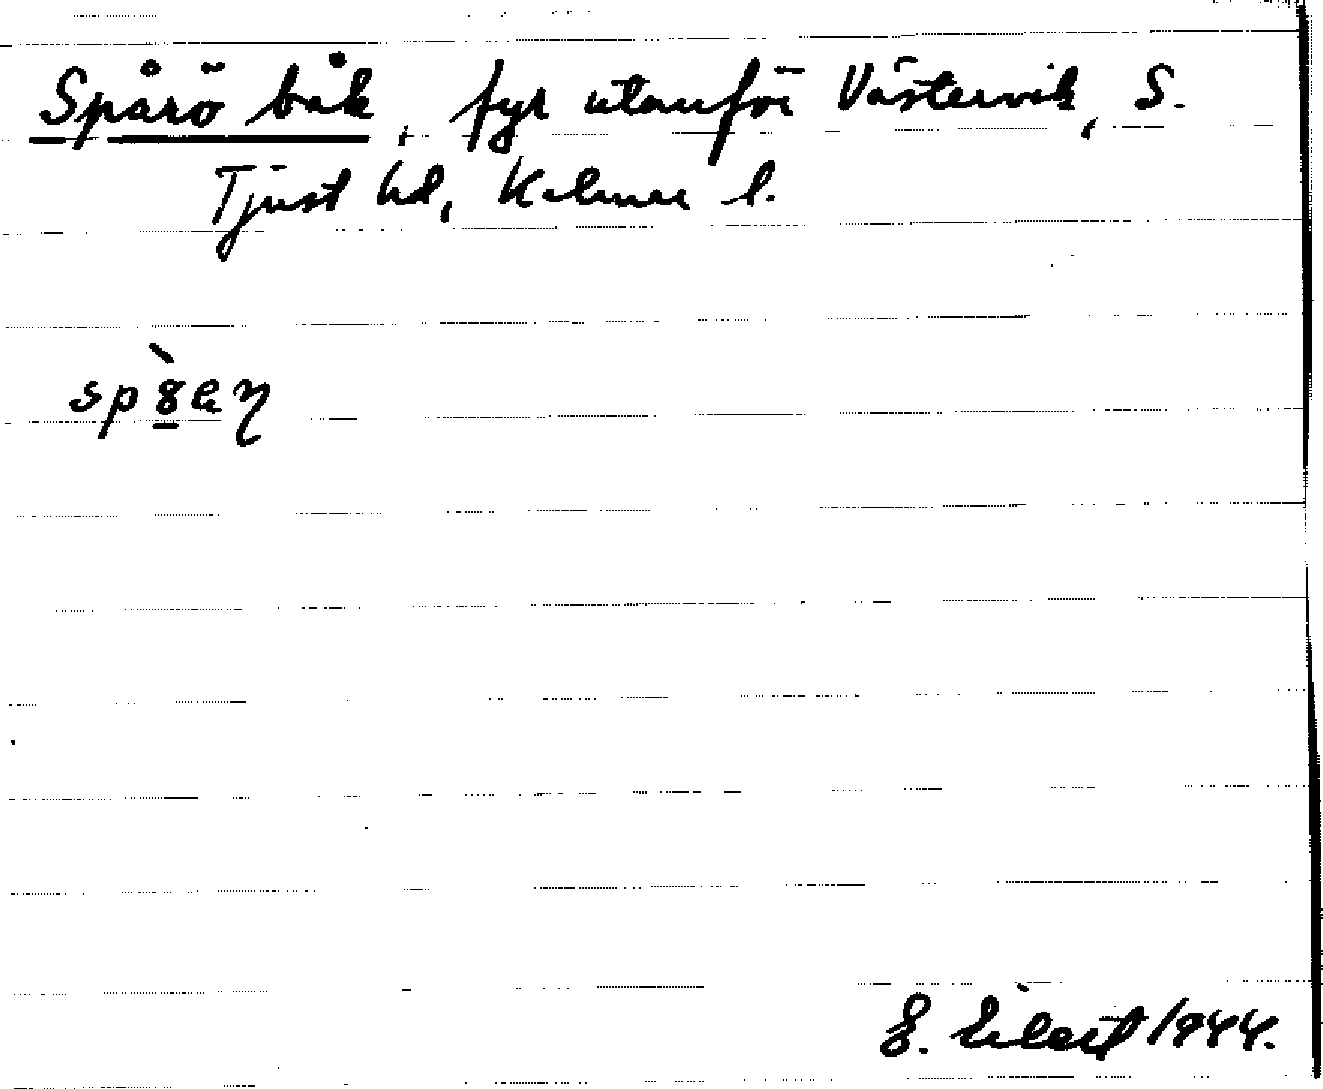 Spårö båk, fyr utanför Västervik, S.
Tjust hd, Kalmar l.
1944.